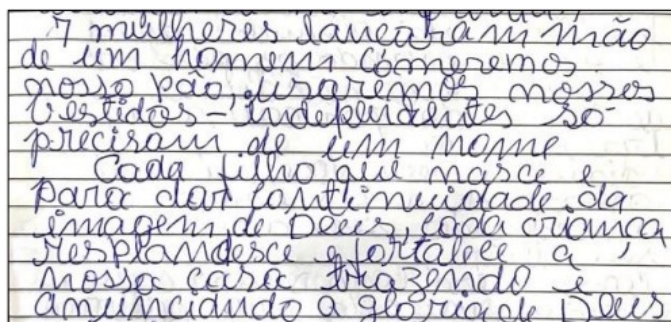 7 mulheres lançaram mão
de um homem comeremos
nosso pão, usaremos nossos
vestidos - independentes só
precisam de um nome
Cada filho que nasce é
para dar continuidade da
imagem de Deus, cada criança
resplandesce e fortalece a
nossa casa trazendo e
anunciando a glória de Deus